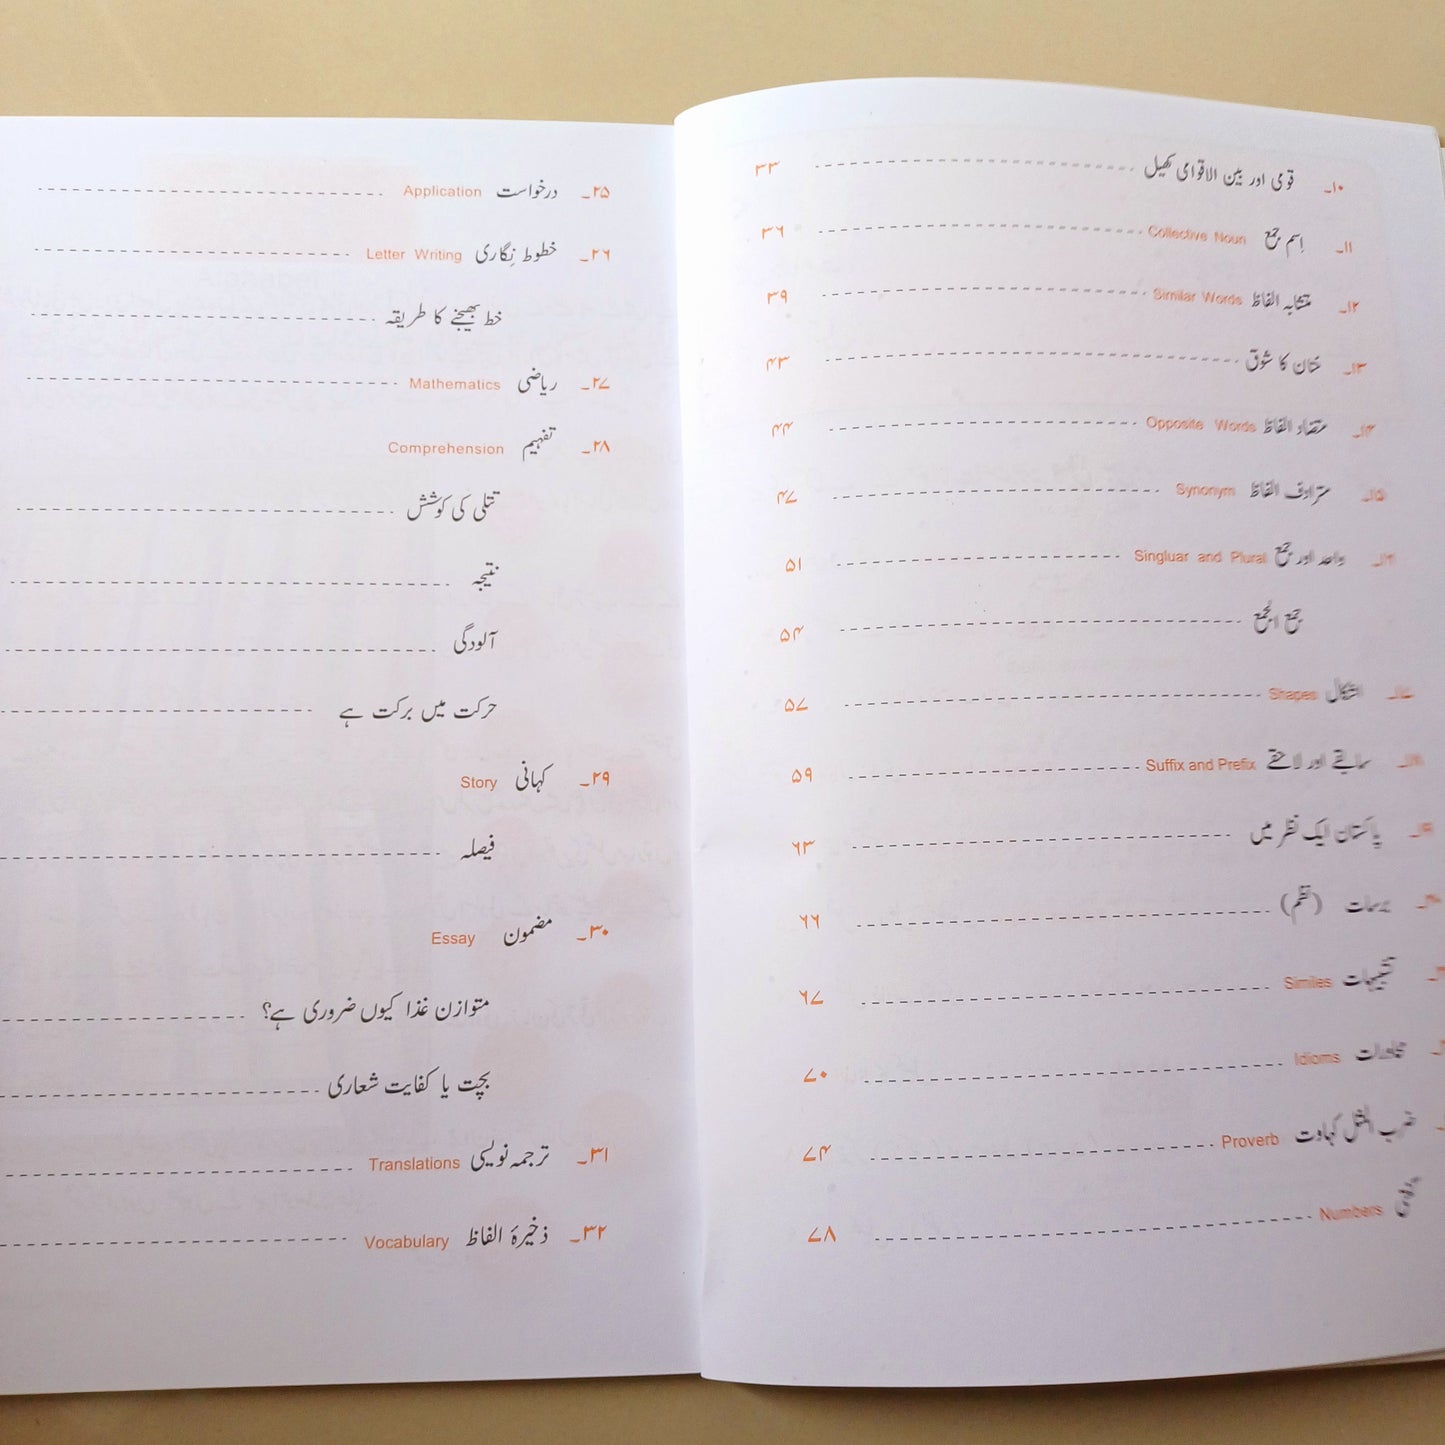 ۱۰۔ قومی اور بین الاقوامی کھیل ------------------------ ۳۳
۱۱۔ اِسم جمع Collective Noun ------------------------ ۳۶
۱۲۔ متشابہ الفاظ Similar Words ------------------------ ۳۹
۱۳۔ حنان کا شوق ------------------------ ۴۳
۱۴۔ متضاد الفاظ Opposite Words ------------------------ ۴۴
۱۵۔ مترادف الفاظ Synonym ------------------------ ۴۷
۱۶۔ واحد اور جمع Singluar and Plural ------------------------ ۵۱
جمع الجمع ------------------------ ۵۴
۱۷۔ اشکال Shapes ------------------------ ۵۷
۱۸۔ سابقے اور لاحقے Suffix and Prefix ------------------------ ۵۹
۱۹۔ پاکستان ایک نظر میں ------------------------ ۶۳
۲۰۔ برسات (نظم) ------------------------ ۶۶
تشبیہات Similes ------------------------ ۶۷
محاورات Idioms ------------------------ ۷۰
ضرب المثل کہاوت Proverb ------------------------ ۷۴
گنتی Numbers ------------------------ ۷۸
۲۵۔ درخواست Application ------------------------
۲۶۔ خطوط نِگاری Letter Writing ------------------------
خط بھیجنے کا طریقہ ------------------------
۲۷۔ ریاضی Mathematics ------------------------
۲۸۔ تفہیم Comprehension
تتلی کی کوشش ------------------------
نتیجہ ------------------------
آلودگی ------------------------
حرکت میں برکت ہے ------------------------
۲۹۔ کہانی Story
فیصلہ ------------------------
۳۰۔ مضمون Essay
متوازن غذا کیوں ضروری ہے؟ ------------------------
بچت یا کفایت شعاری ------------------------
۳۱۔ ترجمہ نویسی Translations ------------------------
۳۲۔ ذخیرۂ الفاظ Vocabulary ------------------------